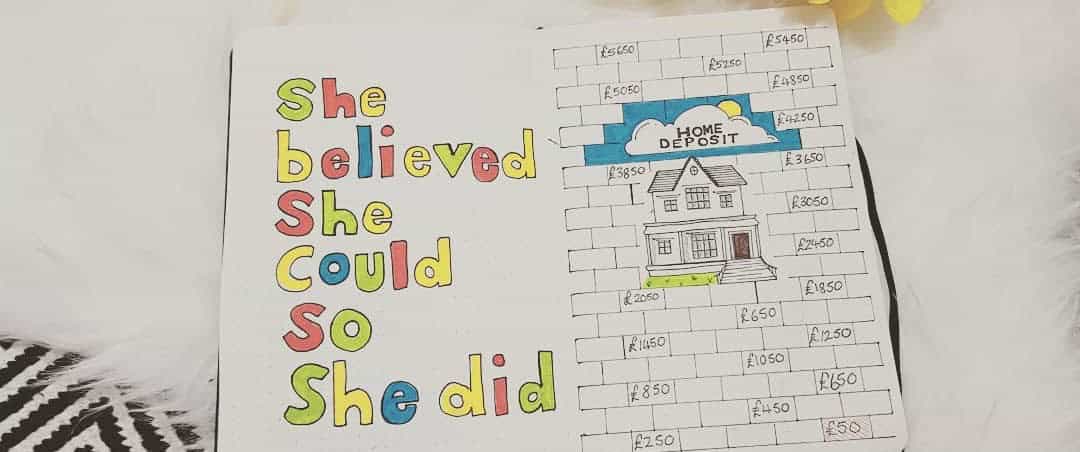 She
believed
She
Could
So
She did
£5650
£5450
£5250
£5050
£4850
£4250
HOME
DEPOSIT
£3850
£3650
£3050
£2450
£2050
£1850
£650
£1450
£1250
£1050
£850
£650
£450
£250
£50